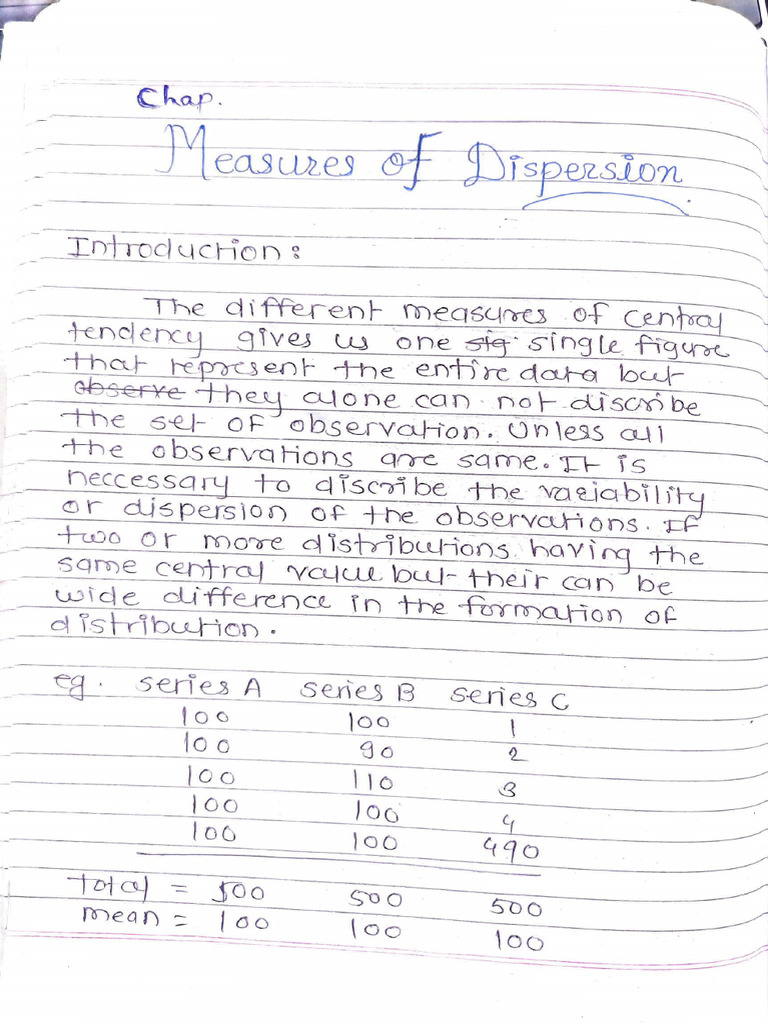 Chap.
Measures of Dispersion
Introduction :
The different measures of central
tendency gives us one sig single figure
that represent the entire data but
observe they alone can not discribe
the set of observation. Unless all
the observations are same. It is
neccessary to discribe the variability
or dispersion of the observations. If
two or more distributions having the
same central value but their can be
wide difference in the formation of
distribution.
eg. series A series B series C
100 100 1
100 90 2
100 110 3
100 100 4
100 100 490
total = 500 500 500
mean = 100 100 100